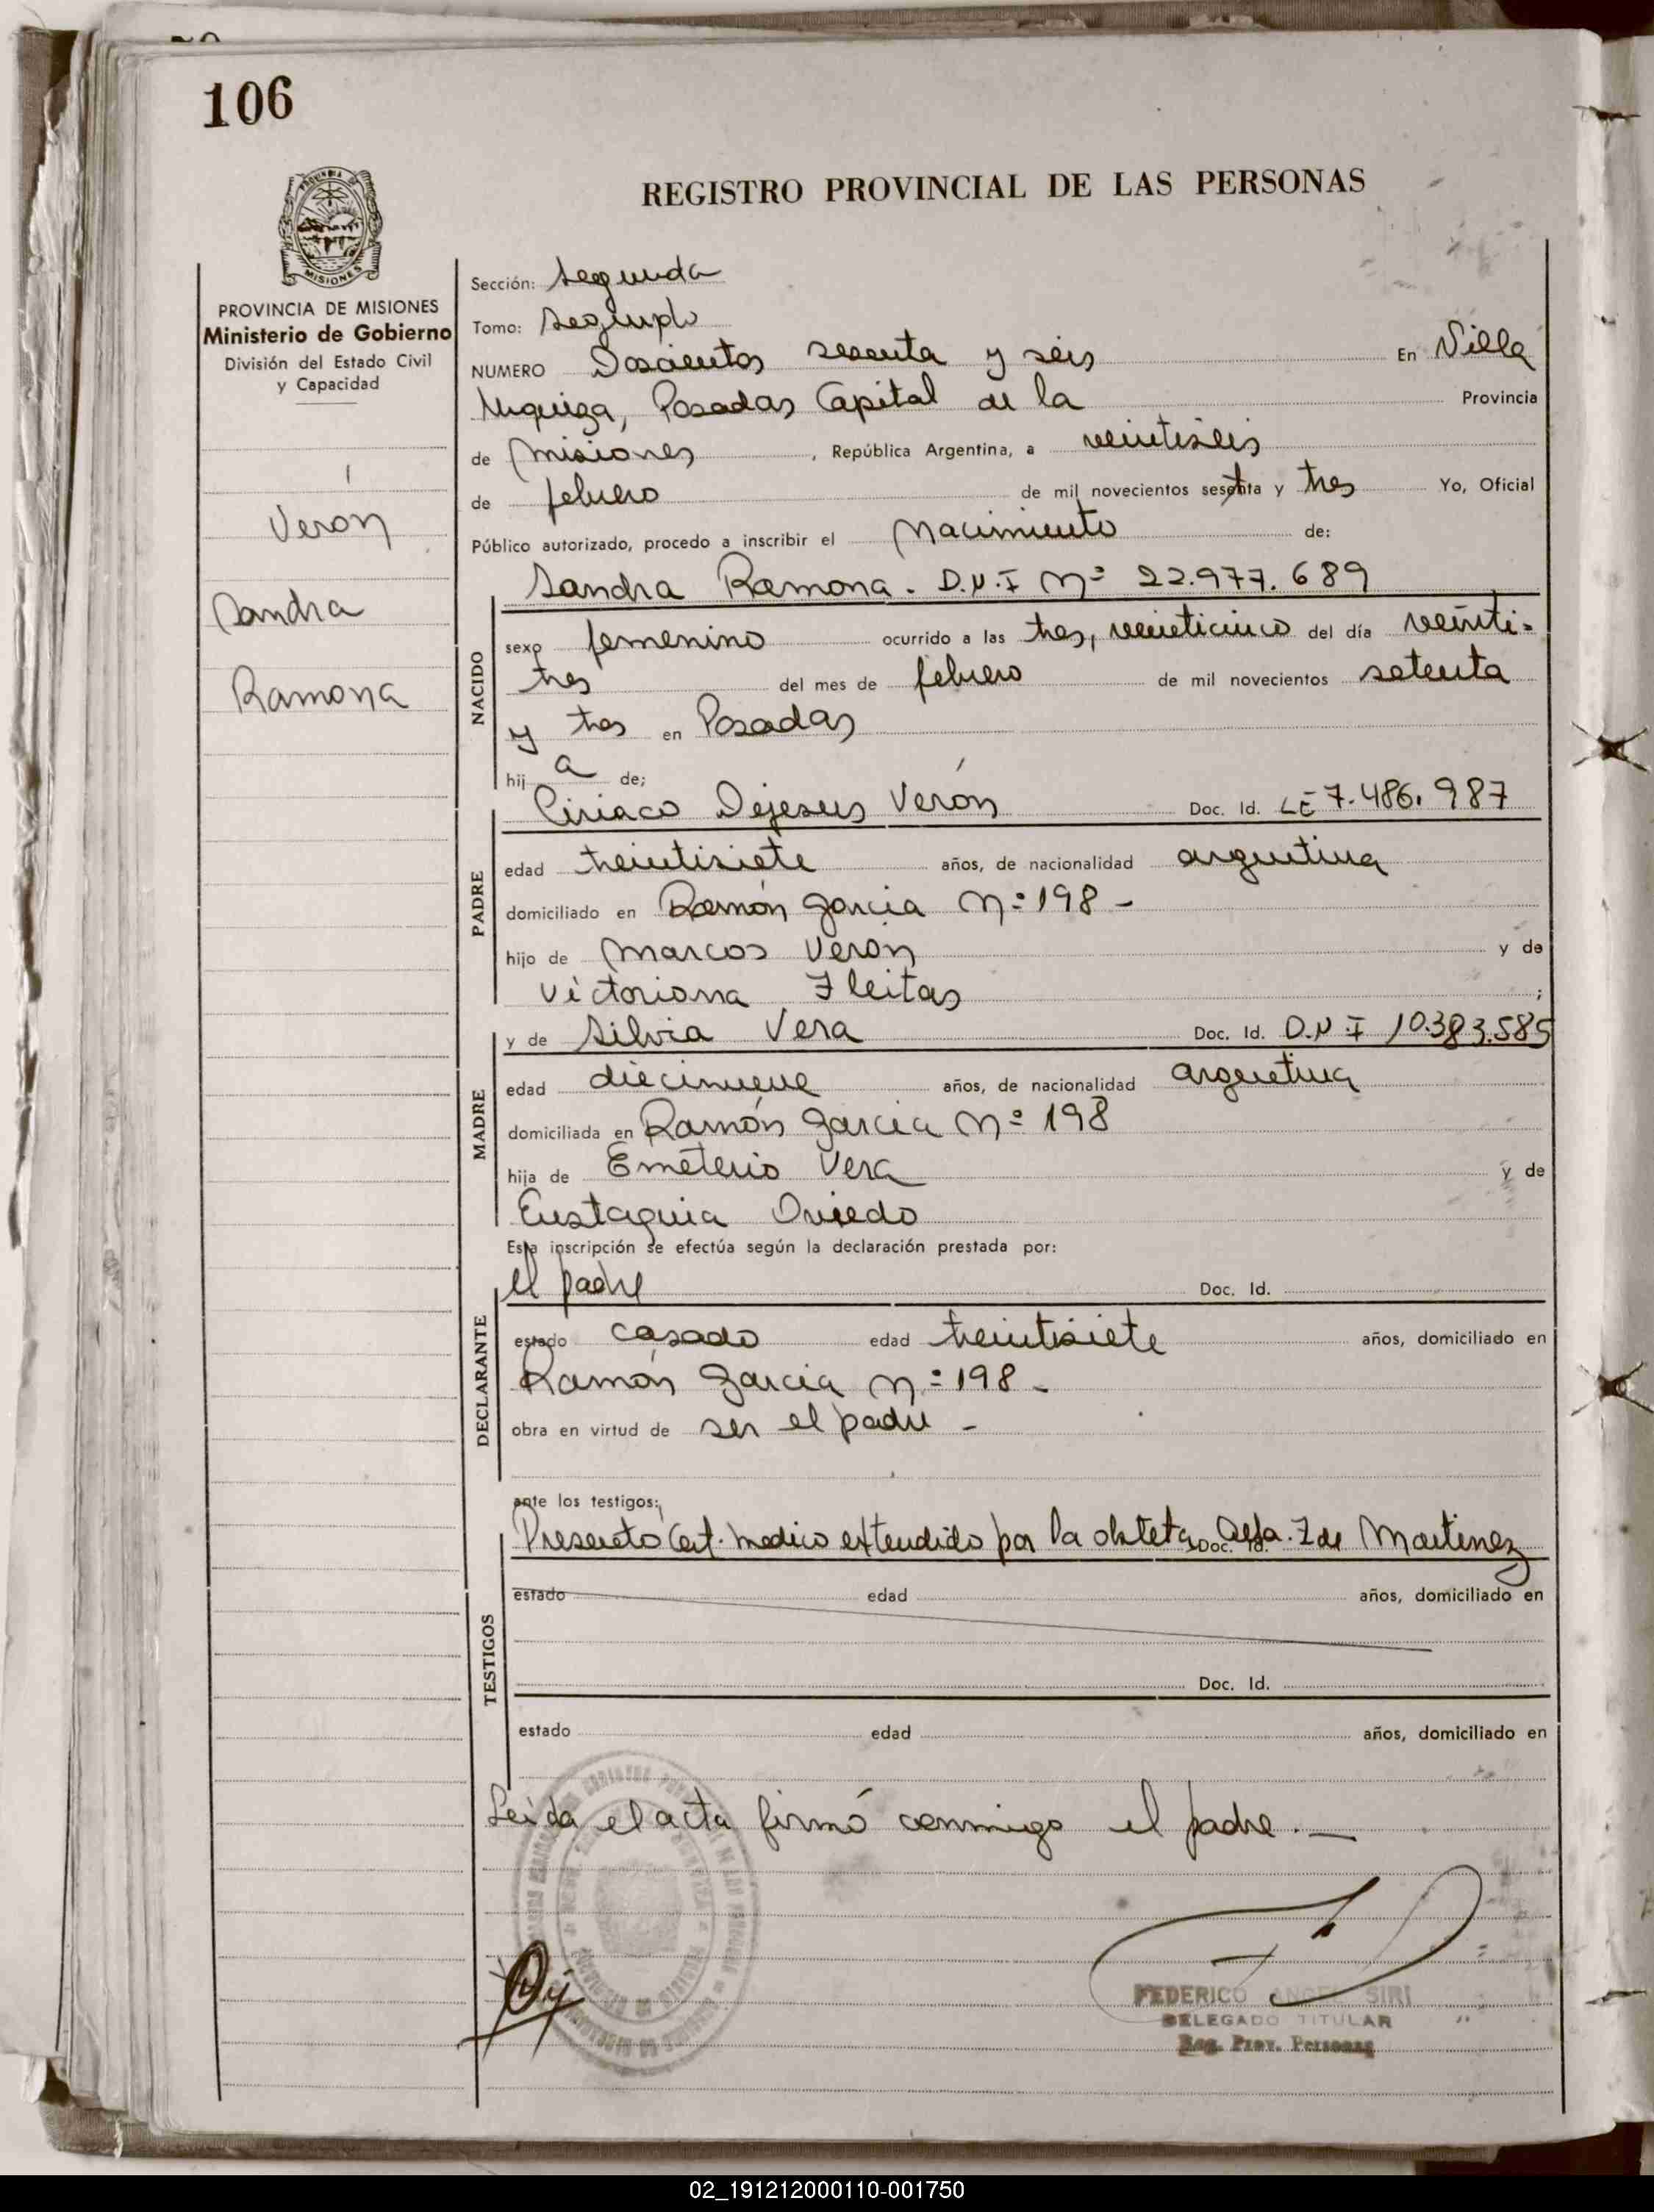 106
REGISTRO PROVINCIAL DE LAS PERSONAS
MISIONES
PROVINCIA DE MISIONES
Ministerio de Gobierno
División del Estado Civil
y Capacidad
Verón
Sandra
Ramona
Sección: Segunda
Tomo: Segundo
NUMERO Doscientos sesenta y seis En Villa
Urquiza, Posadas Capital de la Provincia
de Misiones, República Argentina, a veintiseis
de febrero de mil novecientos setenta y tres Yo, Oficial
Público autorizado, procedo a inscribir el Nacimiento de:
Sandra Ramona. D.N.I Nº 22.977.689
NACIDO
sexo femenino ocurrido a las tres, veinticinco del día veinti-
tres del mes de febrero de mil novecientos setenta
y tres en Posadas
hij a de;
Ciriaco Dejesus Verón Doc. Id. LE 7.486.987
PADRE
edad treintisiete años, de nacionalidad argentina
domiciliado en Ramón Garcia Nº 198 -
hijo de Marcos Verón y de
Victoriana Fleitas ;
y de Silvia Vera Doc. Id. D.N.I 10.383.585
MADRE
edad diecinueve años, de nacionalidad argentina
domiciliada en Ramón Garcia Nº 198
hija de Emeterio Vera y de
Eustaquia Oviedo
Esta inscripción se efectúa según la declaración prestada por:
el padre Doc. Id.
DECLARANTE
estado casado edad treintisiete años, domiciliado en
Ramón Garcia Nº 198 -
obra en virtud de ser el padre -
ante los testigos:
Presentó Cert. medico extendido por la obsteta Doc. Id. de Martinez
TESTIGOS
estado edad años, domiciliado en
Doc. Id.
estado edad años, domiciliado en
Leida el acta firmó conmigo el padre. —
FEDERICO ANGEL SIRI
DELEGADO TITULAR
Reg. Prov. Personas
02_191212000110-001750